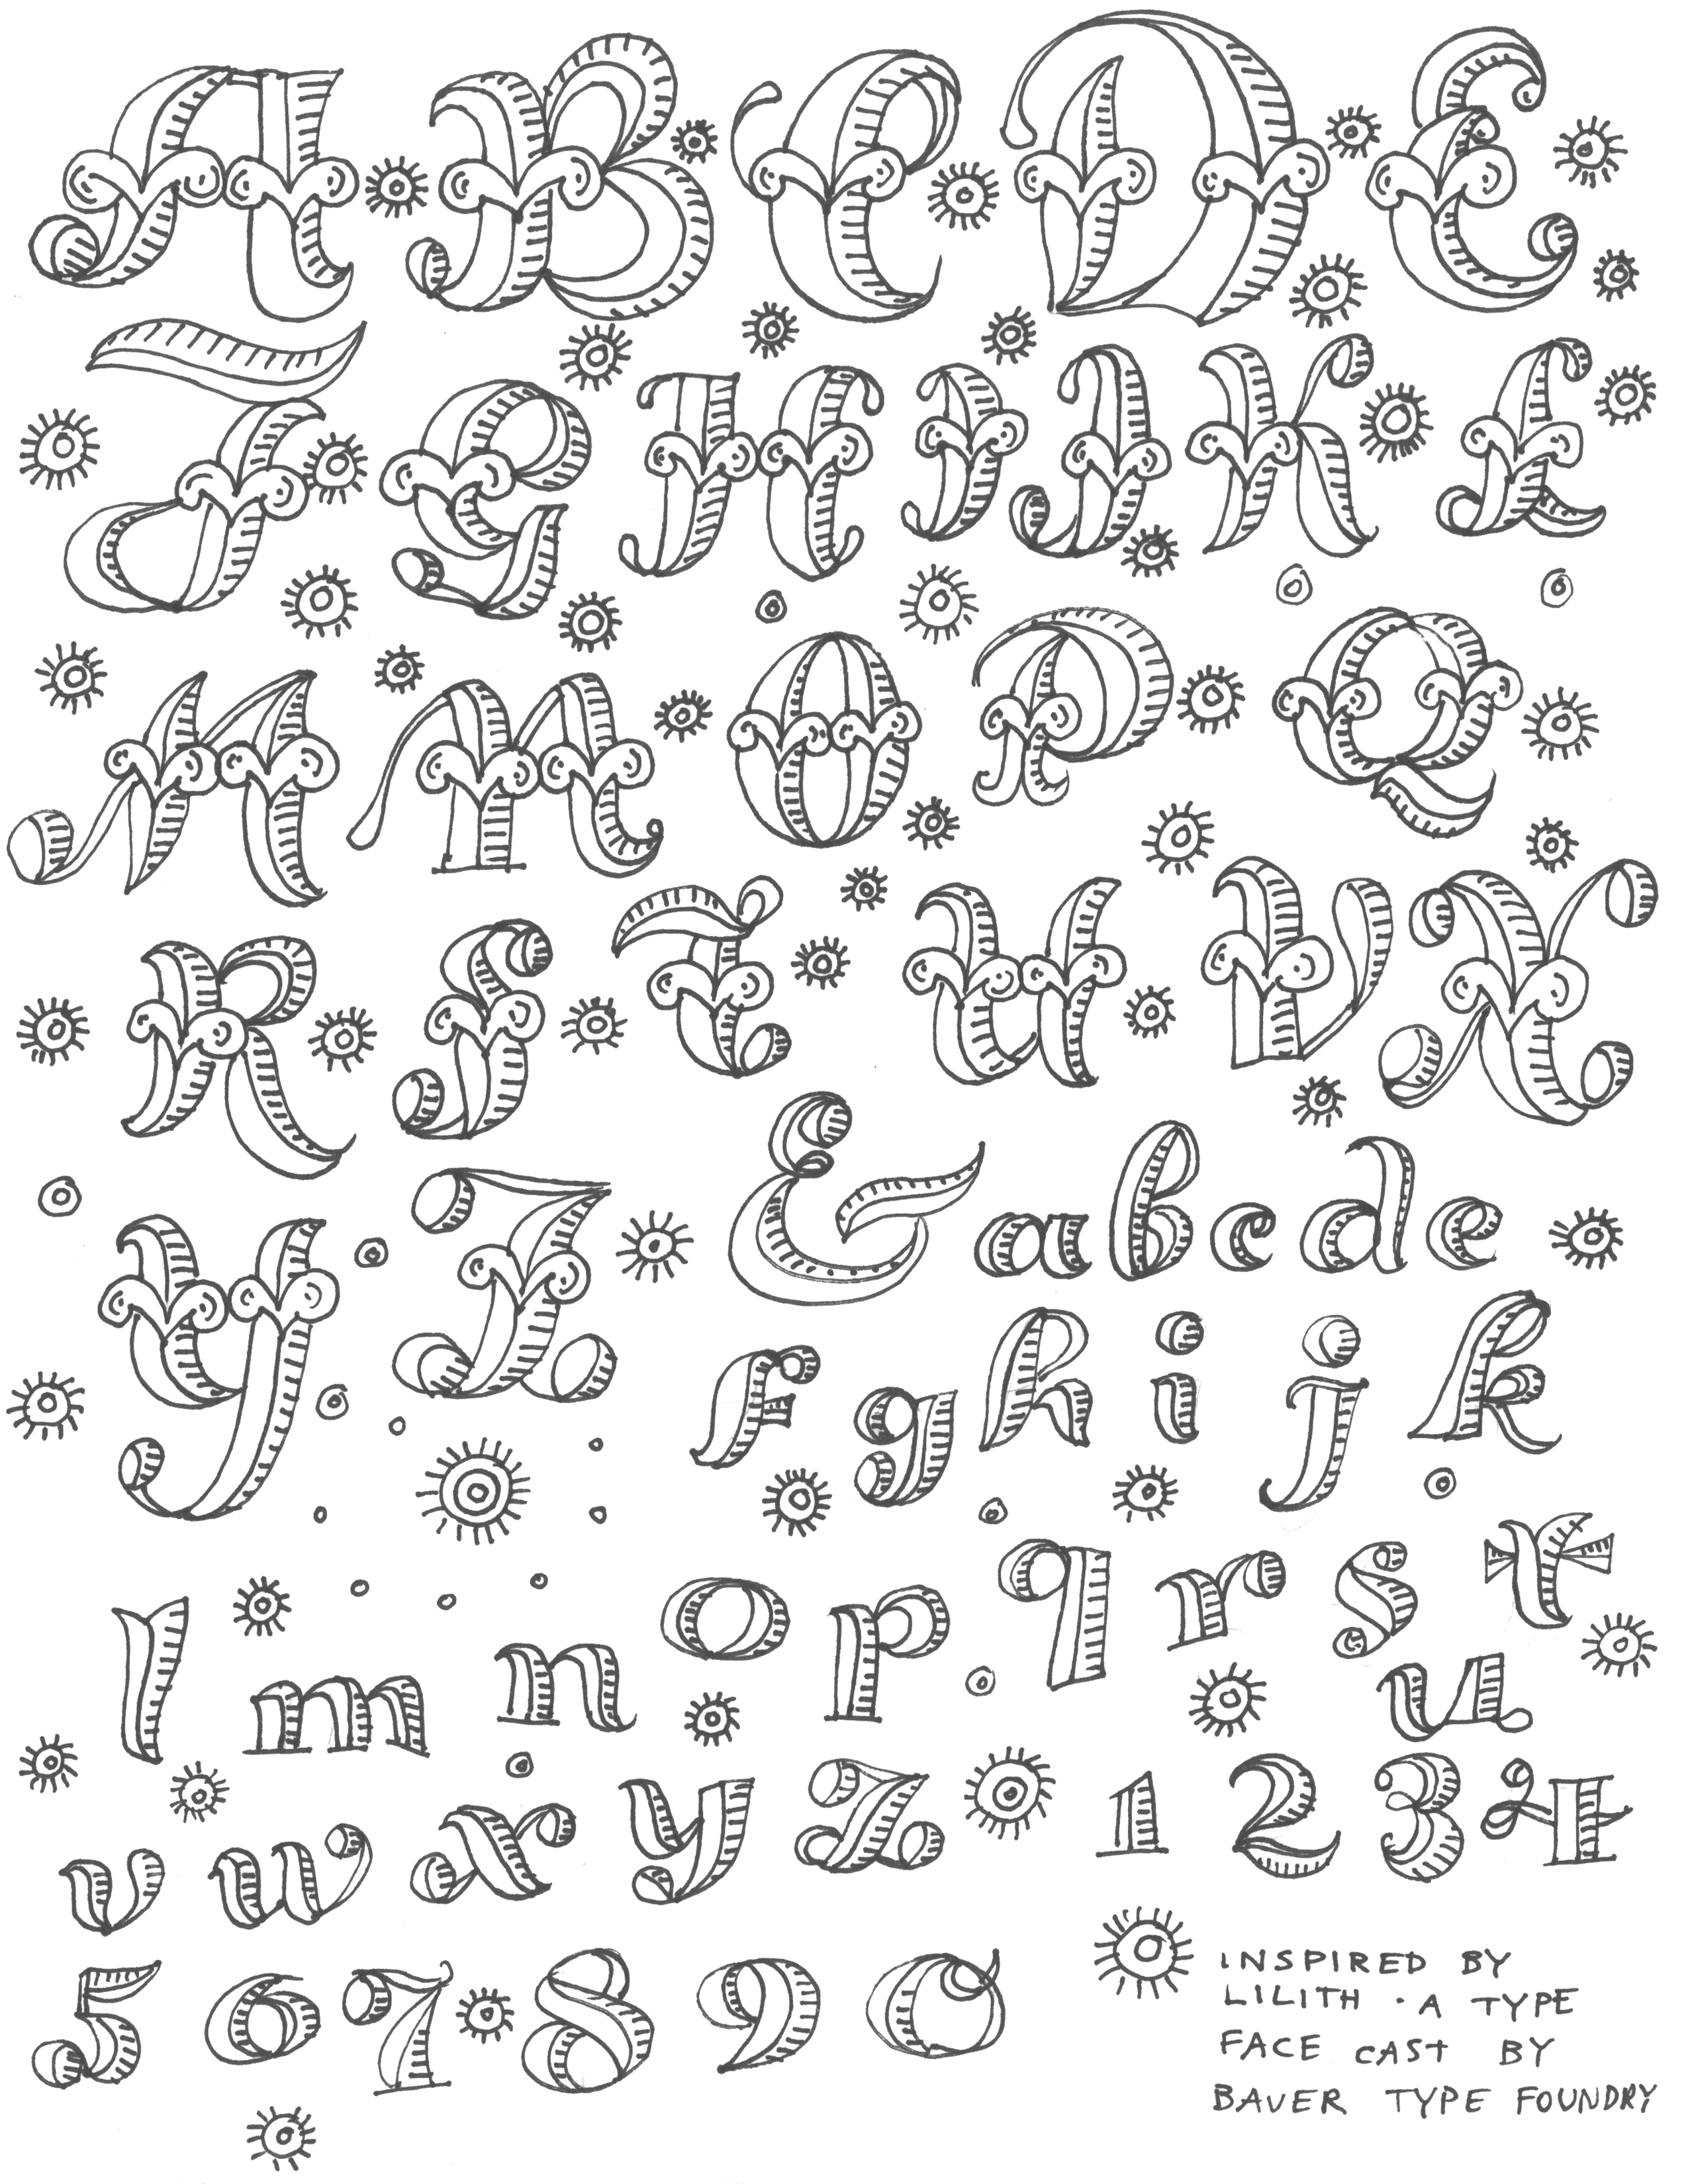 A B C D E
F G H I J K L
M N O P Q
R S T U V X
Y Z & a b c d e
f g h i j k
l m n o p q r s t u
v w x y z 1 2 3 4
5 6 7 8 9 0
INSPIRED BY
LILITH · A TYPE
FACE CAST BY
BAVER TYPE FOUNDRY